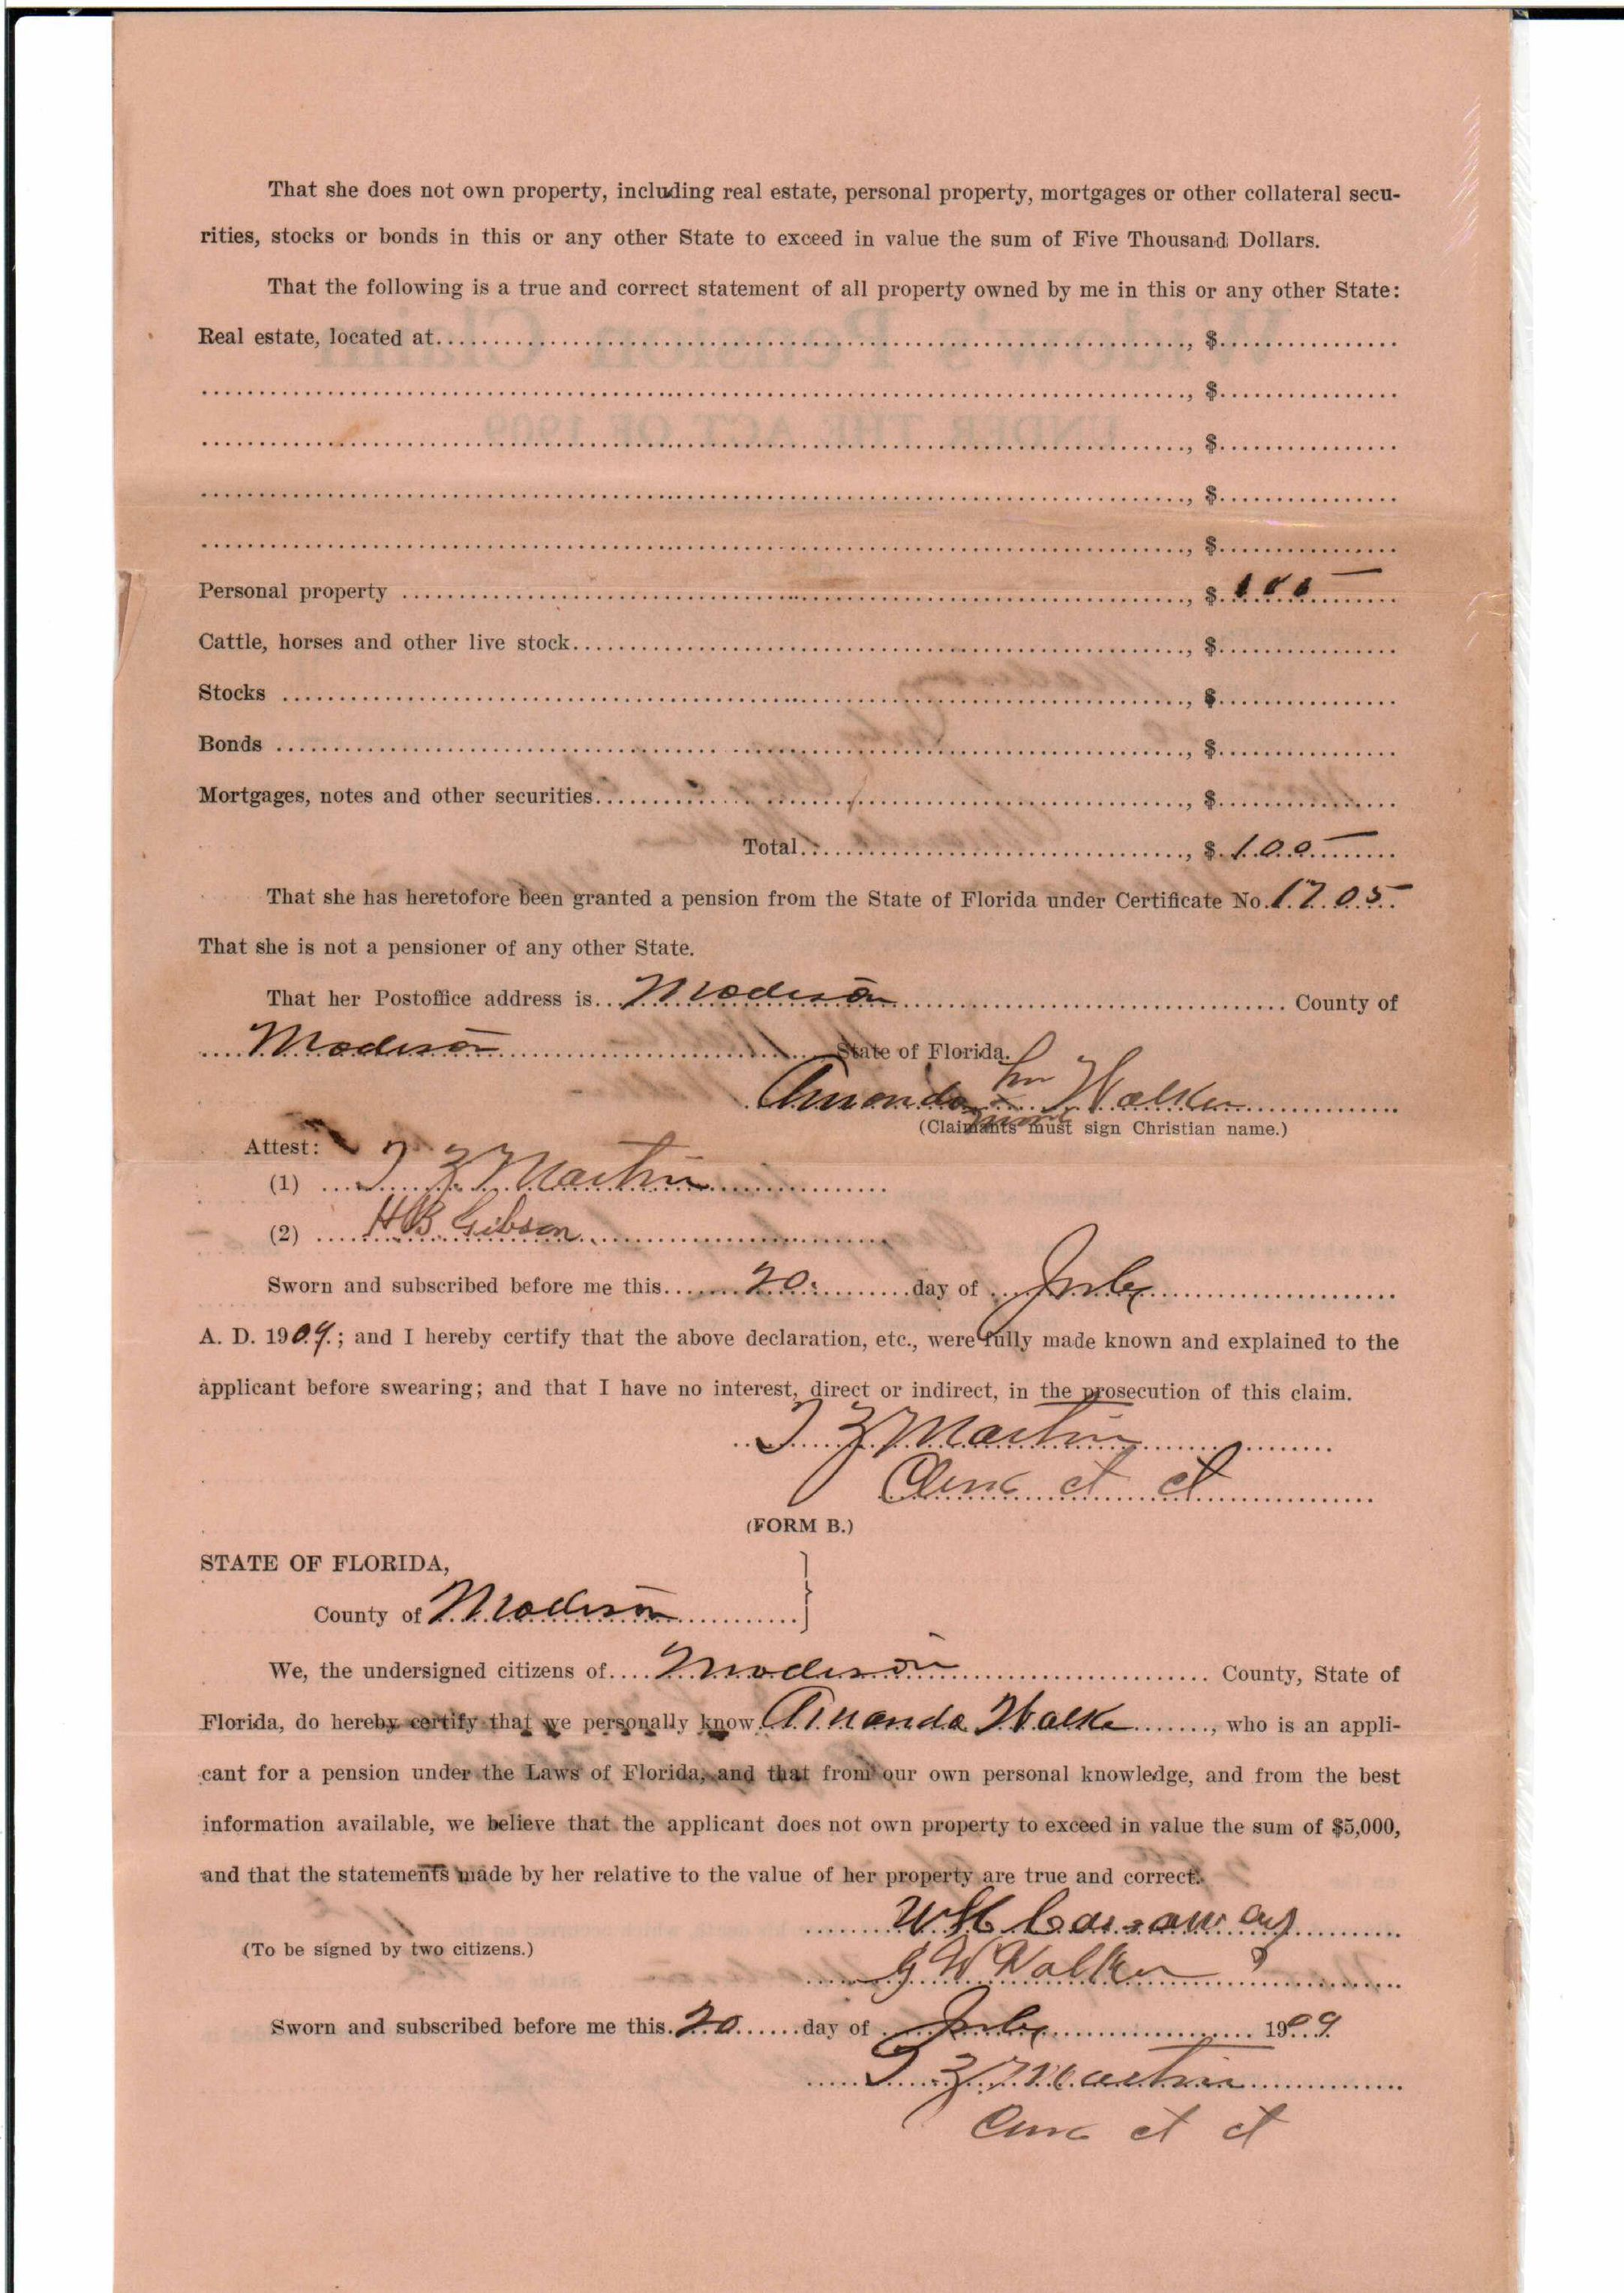 That she does not own property, including real estate, personal property, mortgages or other collateral secu-
rities, stocks or bonds in this or any other State to exceed in value the sum of Five Thousand Dollars.
That the following is a true and correct statement of all property owned by me in this or any other State:
Real estate, located at, $
, $
, $
, $
, $
Personal property, $ 100
Cattle, horses and other live stock, $
Stocks, $
Bonds, $
Mortgages, notes and other securities, $
Total, $ 100
That she has heretofore been granted a pension from the State of Florida under Certificate No. 1705
That she is not a pensioner of any other State.
That her Postoffice address is Madison County of
Madison State of Florida.
her
Amanda x Walker
mark
(Claimants must sign Christian name.)
Attest:
(1) T Z Martin
(2) HB Gibson
Sworn and subscribed before me this 20 day of July
A. D. 1909.; and I hereby certify that the above declaration, etc., were fully made known and explained to the
applicant before swearing; and that I have no interest, direct or indirect, in the prosecution of this claim.
T Z Martin
Clerk ct ct
(FORM B.)
STATE OF FLORIDA,
County of Madison
We, the undersigned citizens of Madison County, State of
Florida, do hereby certify that we personally know Amanda Walker, who is an appli-
cant for a pension under the Laws of Florida, and that from our own personal knowledge, and from the best
information available, we believe that the applicant does not own property to exceed in value the sum of $5,000,
and that the statements made by her relative to the value of her property are true and correct.
WH
(To be signed by two citizens.)
G W Walker
Sworn and subscribed before me this 20 day of July 1909
T Z Martin
Clerk ct ct